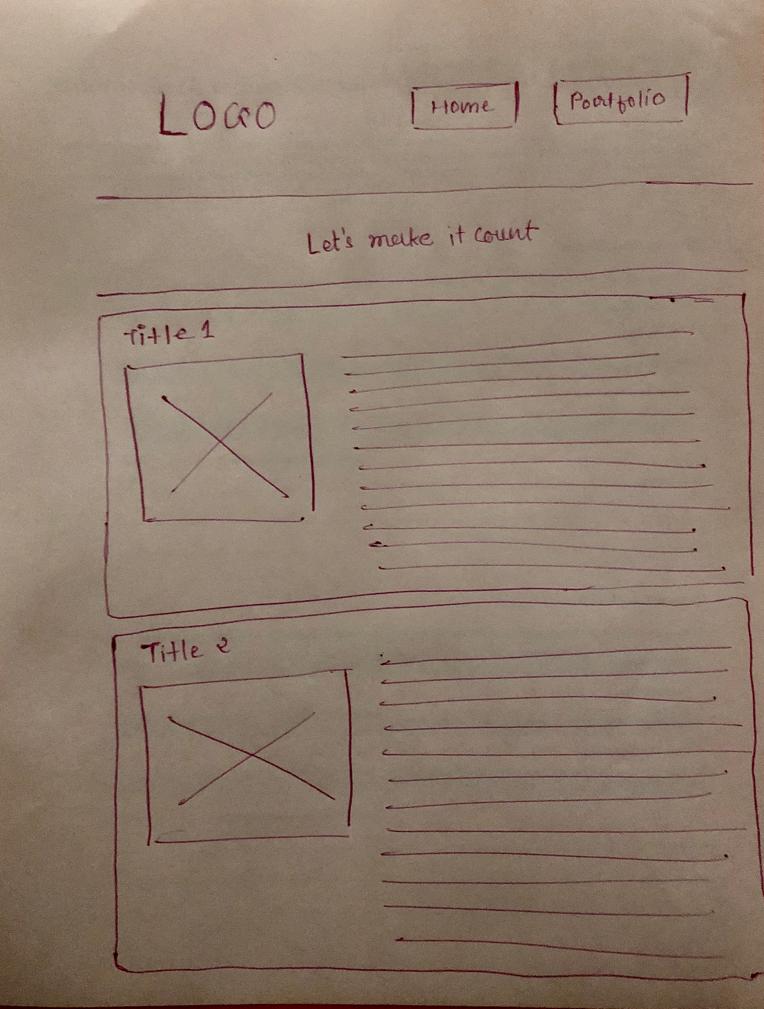 LOGO
Home
Portfolio
Let's make it count
Title 1
Title 2